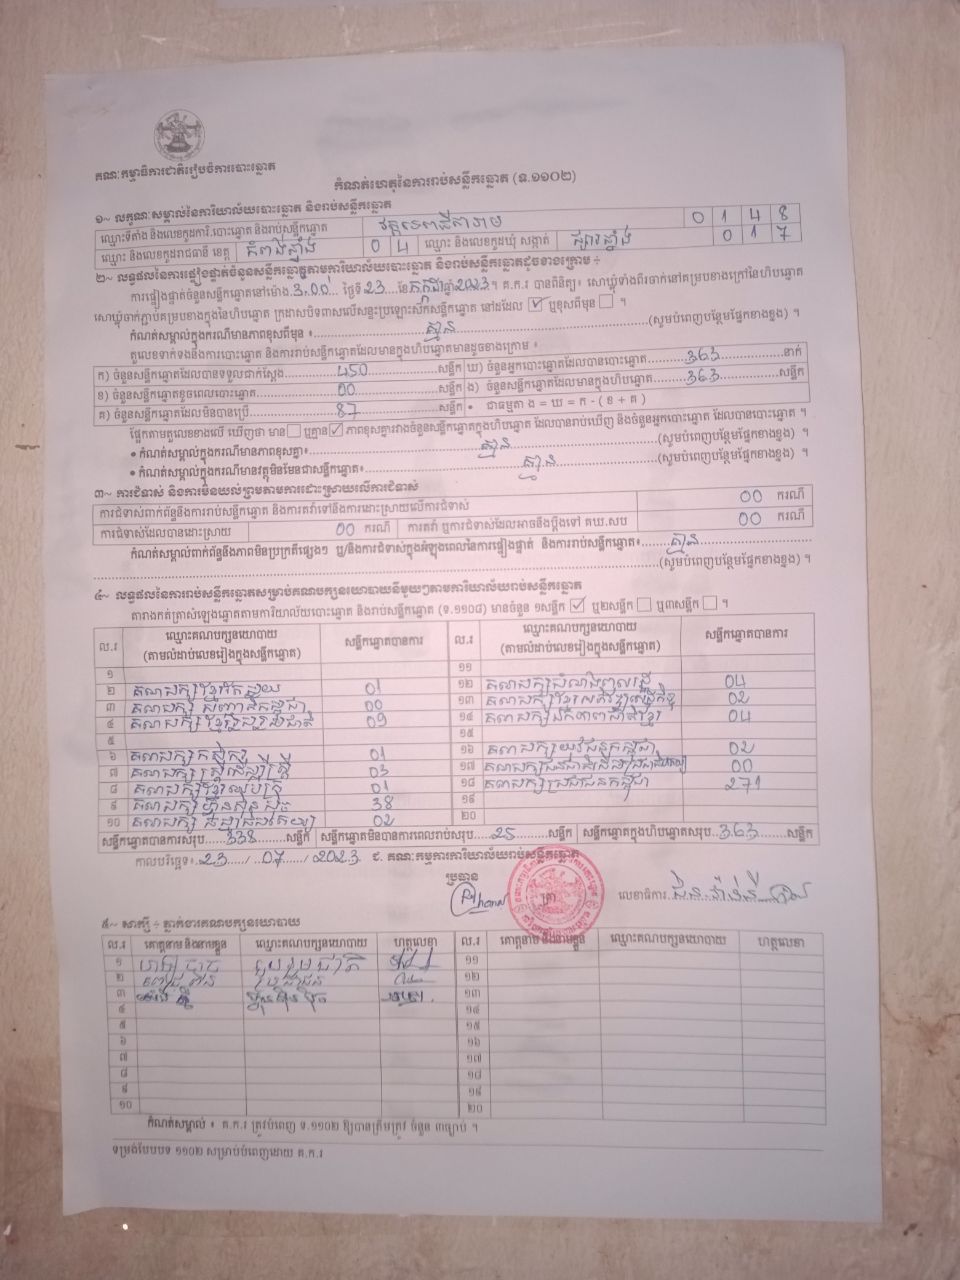 គណៈកម្មាធិការជាតិរៀបចំការបោះឆ្នោត
កំណត់ហេតុនៃការរាប់សន្លឹកឆ្នោត (ទ.១១០២)
១~ លក្ខណៈសម្គាល់នៃការិយាល័យបោះឆ្នោត និងរាប់សន្លឹកឆ្នោត
ឈ្មោះទីតាំង និងលេខកូដការិ.បោះឆ្នោត និងរាប់សន្លឹកឆ្នោត 0 1 4 8
ឈ្មោះ និងលេខកូដរាជធានី ខេត្ត កំពង់ឆ្នាំង 0 4 ឈ្មោះ និងលេខកូដឃុំ សង្កាត់ ផ្សារឆ្នាំង 0 1 7
២~ លទ្ធផលនៃការផ្ទៀងផ្ទាត់ចំនួនសន្លឹកឆ្នោតតាមការិយាល័យបោះឆ្នោត និងរាប់សន្លឹកឆ្នោតដូចខាងក្រោម ÷
ការផ្ទៀងផ្ទាត់ចំនួនសន្លឹកឆ្នោតនៅម៉ោង 3:00 ថ្ងៃទី 23 ខែ កក្កដា ឆ្នាំ 2023 ។ គ.ក.រ បានពិនិត្យ៖ សោឃ្លុំទាំងពីរចាក់នៅគម្របខាងក្រៅនៃហិបឆ្នោត
សោឃ្លុំចាក់ភ្ជាប់គម្របខាងក្នុងនៃហិបឆ្នោត ក្រដាសបិទពាសលើសន្ទះប្រឡោះស៊កសន្លឹកឆ្នោត នៅដដែល ☑ ឬខុសពីមុន ☐ ។
កំណត់សម្គាល់ក្នុងករណីមានភាពខុសពីមុន ៖ គ្មាន (សូមបំពេញបន្ថែមផ្នែកខាងខ្នង) ។
តួលេខទាក់ទងនឹងការបោះឆ្នោត និងការរាប់សន្លឹកឆ្នោតដែលមានក្នុងហិបឆ្នោតមានដូចខាងក្រោម ៖
ក) ចំនួនសន្លឹកឆ្នោតដែលបានទទួលជាក់ស្តែង 450 សន្លឹក ឃ) ចំនួនអ្នកបោះឆ្នោតដែលបានបោះឆ្នោត 363 នាក់
ខ) ចំនួនសន្លឹកឆ្នោតខូចពេលបោះឆ្នោត 00 សន្លឹក ង) ចំនួនសន្លឹកឆ្នោតដែលមានក្នុងហិបឆ្នោត 363 សន្លឹក
គ) ចំនួនសន្លឹកឆ្នោតដែលមិនបានប្រើ 87 សន្លឹក • ជាធម្មតា ង = ឃ = ក - ( ខ + គ )
ផ្អែកតាមតួលេខខាងលើ ឃើញថា មាន ☐ ឬគ្មាន ☑ ភាពខុសគ្នារវាងចំនួនសន្លឹកឆ្នោតក្នុងហិបឆ្នោត ដែលបានរាប់ឃើញ និងចំនួនអ្នកបោះឆ្នោត ដែលបានបោះឆ្នោត ។
• កំណត់សម្គាល់ក្នុងករណីមានភាពខុសគ្នា៖ គ្មាន (សូមបំពេញបន្ថែមផ្នែកខាងខ្នង) ។
• កំណត់សម្គាល់ក្នុងករណីមានវត្ថុមិនមែនជាសន្លឹកឆ្នោត៖ គ្មាន (សូមបំពេញបន្ថែមផ្នែកខាងខ្នង) ។
៣~ ការជំទាស់ និងការមិនយល់ព្រមតាមការដោះស្រាយលើការជំទាស់
ការជំទាស់ពាក់ព័ន្ធនឹងការរាប់សន្លឹកឆ្នោត និងការតវ៉ាទៅនឹងការដោះស្រាយលើការជំទាស់ 00 ករណី
ការជំទាស់ដែលបានដោះស្រាយ 00 ករណី ការតវ៉ា ឬការជំទាស់ដែលអាចនឹងប្តឹងទៅ គឃ.សប 00 ករណី
កំណត់សម្គាល់ពាក់ព័ន្ធនឹងភាពមិនប្រក្រតីផ្សេងៗ ឬ/និងការជំទាស់ក្នុងអំឡុងពេលនៃការផ្ទៀងផ្ទាត់ និងការរាប់សន្លឹកឆ្នោត៖ គ្មាន
(សូមបំពេញបន្ថែមផ្នែកខាងខ្នង) ។
៤~ លទ្ធផលនៃការរាប់សន្លឹកឆ្នោតសម្រាប់គណបក្សនយោបាយនីមួយៗតាមការិយាល័យរាប់សន្លឹកឆ្នោត
តារាងកត់ត្រាសំឡេងឆ្នោតតាមការិយាល័យបោះឆ្នោត និងរាប់សន្លឹកឆ្នោត (ទ.១១០៨) មានចំនួន ១សន្លឹក ☑ ឬ២សន្លឹក ☐ ឬ៣សន្លឹក ☐ ។
ល.រ ឈ្មោះគណបក្សនយោបាយ សន្លឹកឆ្នោតបានការ ល.រ ឈ្មោះគណបក្សនយោបាយ សន្លឹកឆ្នោតបានការ
(តាមលំដាប់លេខរៀងក្នុងសន្លឹកឆ្នោត) (តាមលំដាប់លេខរៀងក្នុងសន្លឹកឆ្នោត)
១ ១១
២ គណបក្ស 01 ១២ គណបក្ស 04
៣ គណបក្ស 00 ១៣ គណបក្ស 02
៤ គណបក្ស 09 ១៤ គណបក្ស 04
៥ ១៥
៦ គណបក្សកសិករ 01 ១៦ គណបក្សយុវជនកម្ពុជា 02
៧ គណបក្ស 03 ១៧ គណបក្ស 00
៨ គណបក្ស 01 ១៨ គណបក្សប្រជាជនកម្ពុជា 271
៩ គណបក្សហ៊្វុនស៊ិនប៉ិច 38 ១៩
១០ គណបក្ស 02 ២០
សន្លឹកឆ្នោតបានការសរុប 338 សន្លឹក សន្លឹកឆ្នោតមិនបានការពេលរាប់សរុប 25 សន្លឹក សន្លឹកឆ្នោតក្នុងហិបឆ្នោតសរុប 363 សន្លឹក
កាលបរិច្ឆេទ៖ 23 / 07 / 2023 ជ. គណៈកម្មការការិយាល័យរាប់សន្លឹកឆ្នោត
ប្រធាន ត្រា លេខាធិការ
៥~ សាក្សី ÷ ភ្នាក់ងារគណបក្សនយោបាយ
ល.រ គោត្តនាម និងនាមខ្លួន ឈ្មោះគណបក្សនយោបាយ ហត្ថលេខា ល.រ គោត្តនាម និងនាមខ្លួន ឈ្មោះគណបក្សនយោបាយ ហត្ថលេខា
១ ១១
២ ១២
៣ ហ៊្វុនស៊ិនប៉ិច ១៣
៤ ១៤
៥ ១៥
៦ ១៦
៧ ១៧
៨ ១៨
៩ ១៩
១០ ២០
កំណត់សម្គាល់ ៖ គ.ក.រ ត្រូវបំពេញ ទ.១១០២ ឱ្យបានត្រឹមត្រូវ ចំនួន ៣ច្បាប់ ។
ទម្រង់បែបបទ ១១០២ សម្រាប់បំពេញដោយ គ.ក.រ